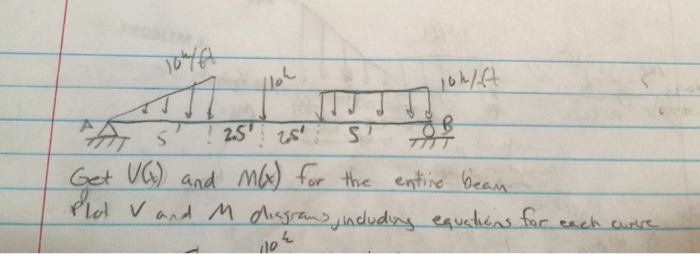 10k/ft
10k
10k/ft
A 5' 2.5' 2.5' 5' B
Get V(x) and M(x) for the entire beam
Plot V and M diagrams, including equations for each curve
10k